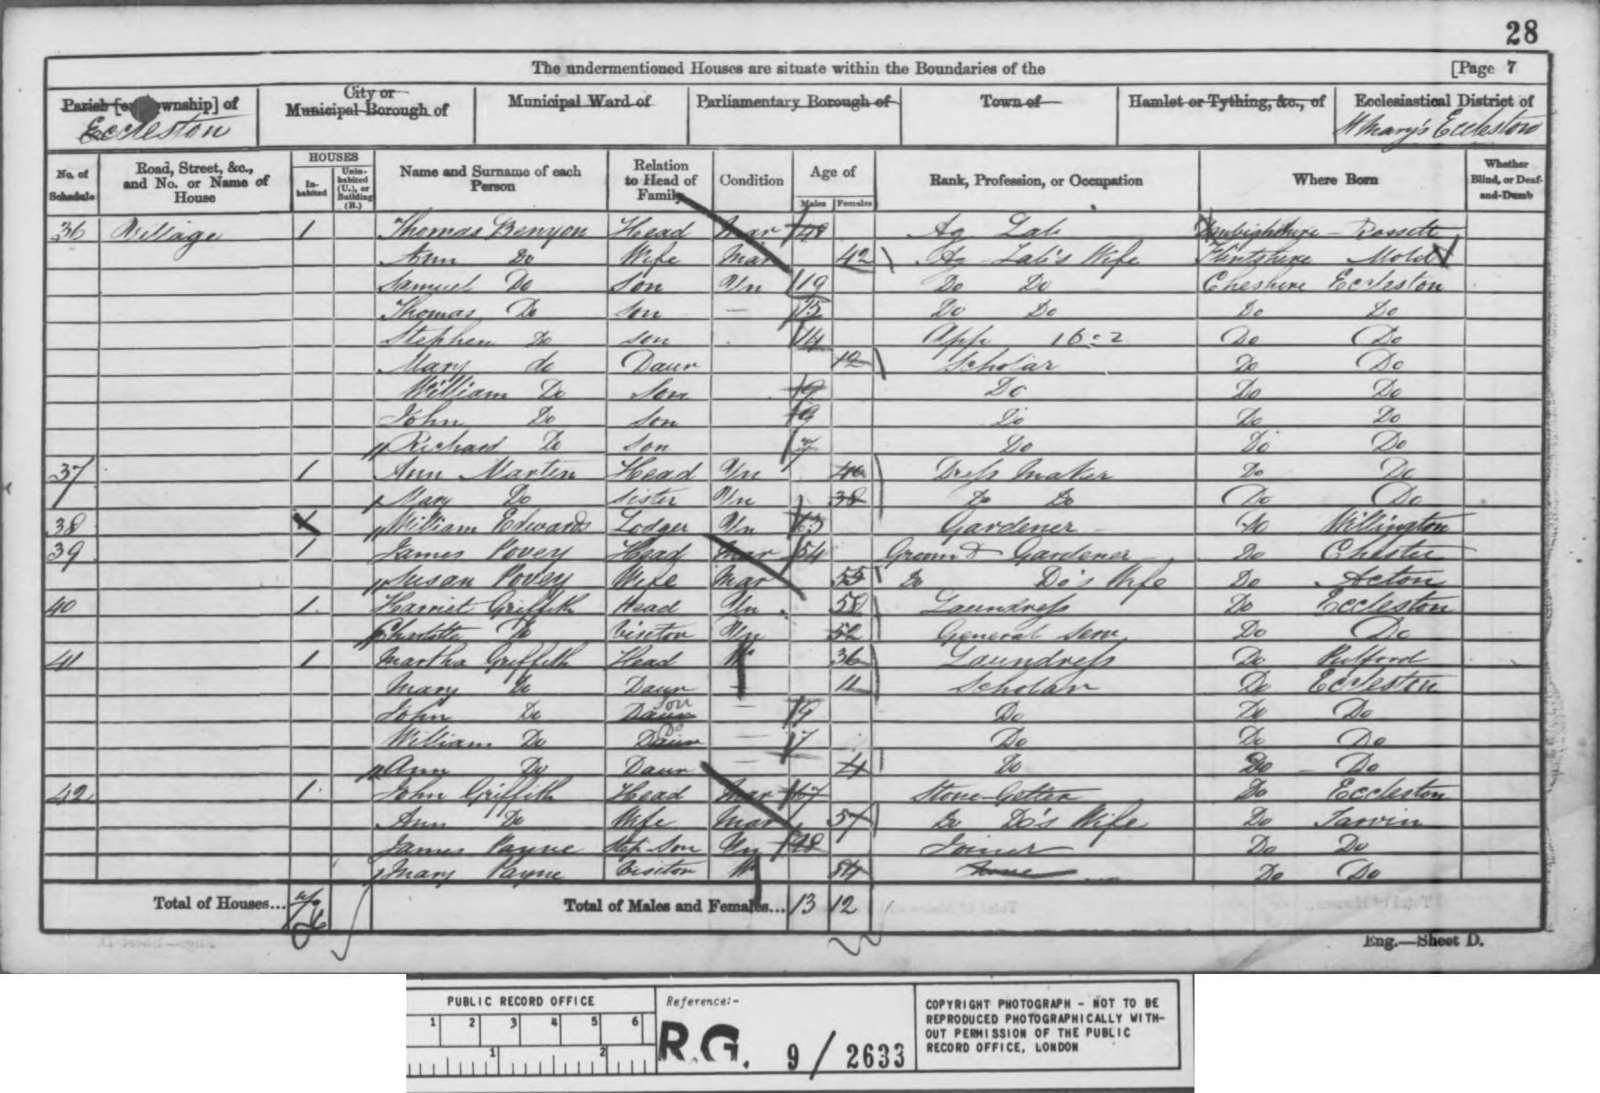 28
The undermentioned Houses are situate within the Boundaries of the [Page 7
Parish [or Township] of City or Municipal Borough of Municipal Ward of Parliamentary Borough of Town of Hamlet or Tything, &c., of Ecclesiastical District of
Eccleston St Mary's Eccleston
No. of Schedule Road, Street, &c., and No. or Name of House HOUSES Inhabited Uninhabited (U.), or Building (B.) Name and Surname of each Person Relation to Head of Family Condition Age of Males Females Rank, Profession, or Occupation Where Born Whether Blind, or Deaf-and-Dumb
36 Village 1 Thomas Benyon Head Mar 48 Ag Lab Denbighshire Rossett
Ann Do Wife Mar 42 Ag Lab's Wife Flintshire Mold
Samuel Do Son Un 19 Do Do Cheshire Eccleston
Thomas Do son 15 Do Do Do Do
Stephen Do son 14 App Do Do
Mary do Daur 12 Scholar Do Do
William Do Son 9 Do Do Do
John Do son 9 Do Do Do
Richard Do son 7 Do Do Do
37 1 Ann Martin Head Un 40 Dress maker Do Do
Mary Do sister Un 38 Do Do Do Do
38 William Edwards Lodger Un 63 Gardener Do Willington
39 1 James Povey Head Mar 54 Groom & Gardener Do Chester
Susan Povey Wife Mar 55 Do Do's Wife Do Acton
40 1 Harriet Griffith Head Un 58 Laundress Do Eccleston
Charlotte Do Visitor Un 52 General Serv Do Do
41 1 Martha Griffith Head W 36 Laundress Do Pulford
Mary Do Daur 11 Scholar Do Eccleston
John Do Daur Son 9 Do Do Do
William Do Daur Do 7 Do Do Do
Ann Do Daur 4 Do Do Do
42 1 John Griffith Head Mar 67 Stone Getter Do Eccleston
Ann Do Wife Mar 57 Do Do's Wife Do Tarvin
James Payne Step Son Un 28 Joiner Do Do
Mary Payne Visitor W 84 Do Do
Total of Houses... 6 Total of Males and Females... 13 12
Eng.—Sheet D.
PUBLIC RECORD OFFICE
1 2 3 4 5 6
1 2
Reference:-
R.G. 9/2633
COPYRIGHT PHOTOGRAPH - NOT TO BE
REPRODUCED PHOTOGRAPHICALLY WITH-
OUT PERMISSION OF THE PUBLIC
RECORD OFFICE, LONDON